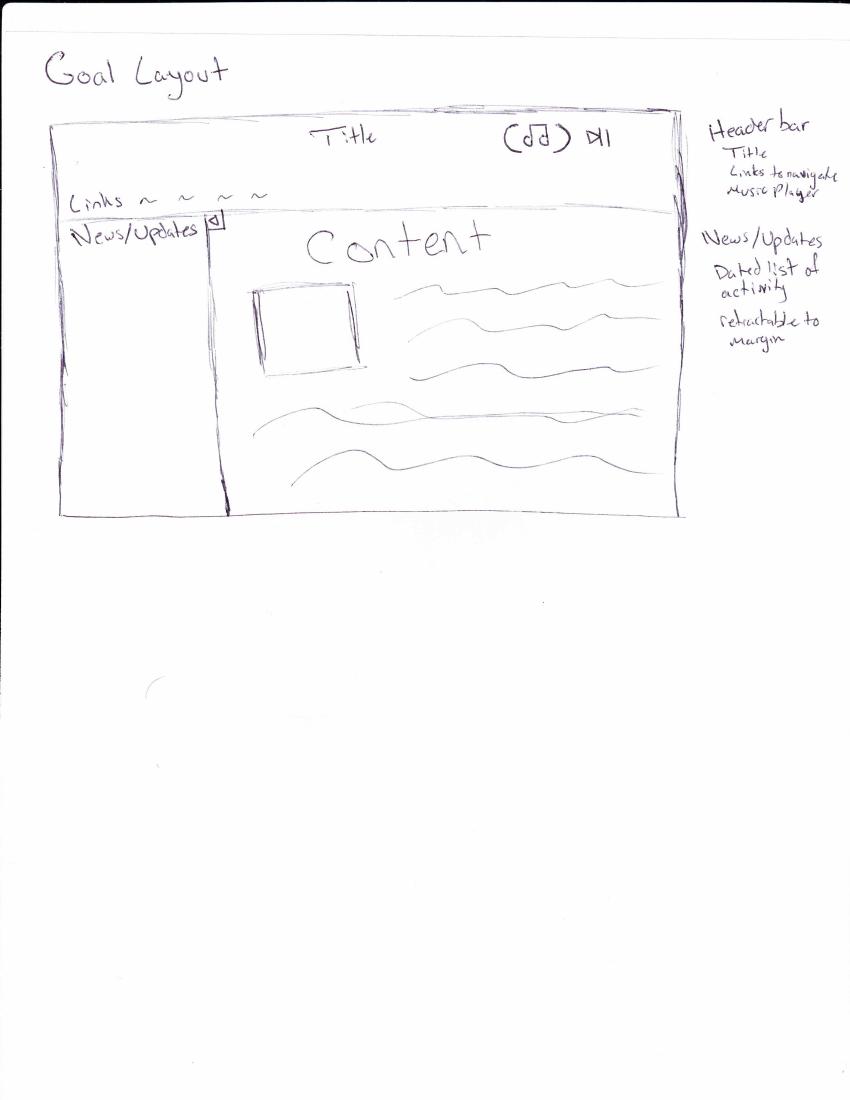 Goal Layout
Title
Links ~ ~ ~ ~
News/Updates
Content
Header bar
Title
Links to navigate
Music Player
News/Updates
Dated list of
activity
retractable to
margin